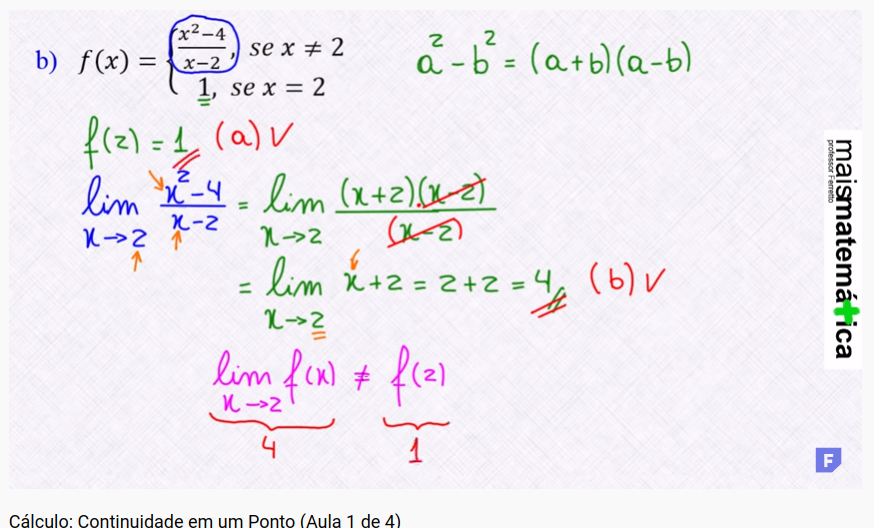 b) f(x) = { x²−4 / x−2, se x ≠ 2
1, se x = 2
a² - b² = (a+b)(a-b)
f(2) = 1 (a) V
lim x→2 x²-4 / x-2 = lim x→2 (x+2).(x-2) / (x-2)
= lim x→2 x+2 = 2+2 = 4 (b) V
lim x→2 f(x) ≠ f(2)
4 1
maismatemática
professor Ferretto
F
Cálculo: Continuidade em um Ponto (Aula 1 de 4)